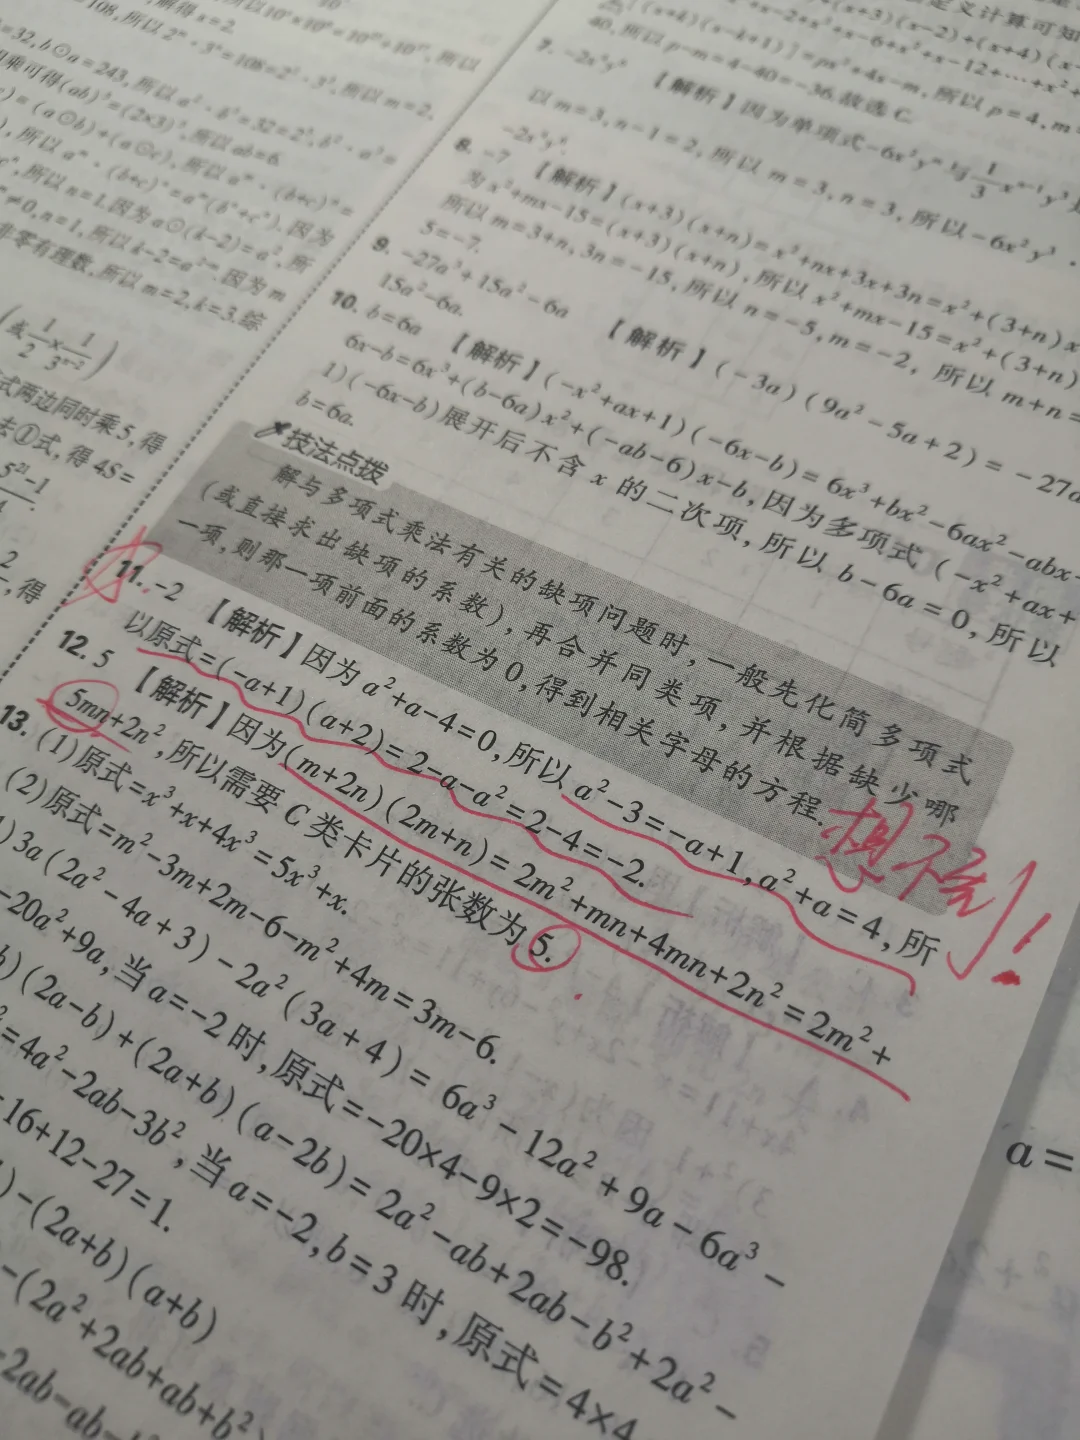 解得x=2.
=108,所以2ᵐ·3ⁿ=108=2²·3³,所以m=2,
=32,b⊙a=243,所以
相乘可得(ab)⁵=(2×3)⁵,所以ab=6.
)=(a⊙b)+(a⊙c),所以aⁿ·(b+c)ⁿ=
),所以aᵐ·(b+c)ⁿ=aᵐ(bⁿ+cⁿ).因为
,所以n=1.因为a⊙(k-2)=a²,所
≠0,n=1,所以
非零有理数,所以m=2,k=3.综
式两边同时乘5,得
去①式,得4S=
5²¹-1
,得
40,所以p-m=4-40=-36.故选C.
7. 【解析】因为单项式
以m=3,n-1=2,所以m=3,n=3,所以-6x²y³·
8. -7 【解析】(x+3)(x+n)=x²+nx+3x+3n=x²+(3+n)x
为x²+mx-15=(x+3)(x+n),所以x²+mx-15=x²+(3+n)
所以m=3+n,3n=-15,所以n=-5,m=-2,所以m+n=
5=-7.
9. -27a³+15a²-6a 【解析】(-3a)(9a²-5a+2)=-27a
15a²-6a.
10. b=6a 【解析】(-x²+ax+1)(-6x-b)=6x³+bx²-6ax²-abx-
6x-b=6x³+(b-6a)x²+(-ab-6)x-b,因为多项式(-x²+ax+
1)(-6x-b)展开后不含x的二次项,所以b-6a=0,所以
b=6a.
技法点拨
解与多项式乘法有关的缺项问题时,一般先化简多项式
(或直接求出缺项的系数),再合并同类项,并根据缺少哪
一项,则那一项前面的系数为0,得到相关字母的方程.
想不到!
11. -2 【解析】因为a²+a-4=0,所以a²-3=-a+1,a²+a=4,所
以原式=(-a+1)(a+2)=2-a-a²=2-4=-2.
12. 5 【解析】因为(m+2n)(2m+n)=2m²+mn+4mn+2n²=2m²+
5mn+2n²,所以需要C类卡片的张数为5.
13. (1)原式=x³+x+4x³=5x³+x.
(2)原式=m²-3m+2m-6-m²+4m=3m-6.
3a(2a²-4a+3)-2a²(3a+4)=6a³-12a²+9a-6a³-
-20a²+9a,当a=-2时,原式=-20×4-9×2=-98.
b)(2a-b)+(2a+b)(a-2b)=2a²-ab+2ab-b²+2a²-
=4a²-2ab-3b²,当a=-2,b=3时,原式=4×4
16+12-27=1.
)-(2a+b)(a+b)
-(2a²+2ab+ab+b²)
a=